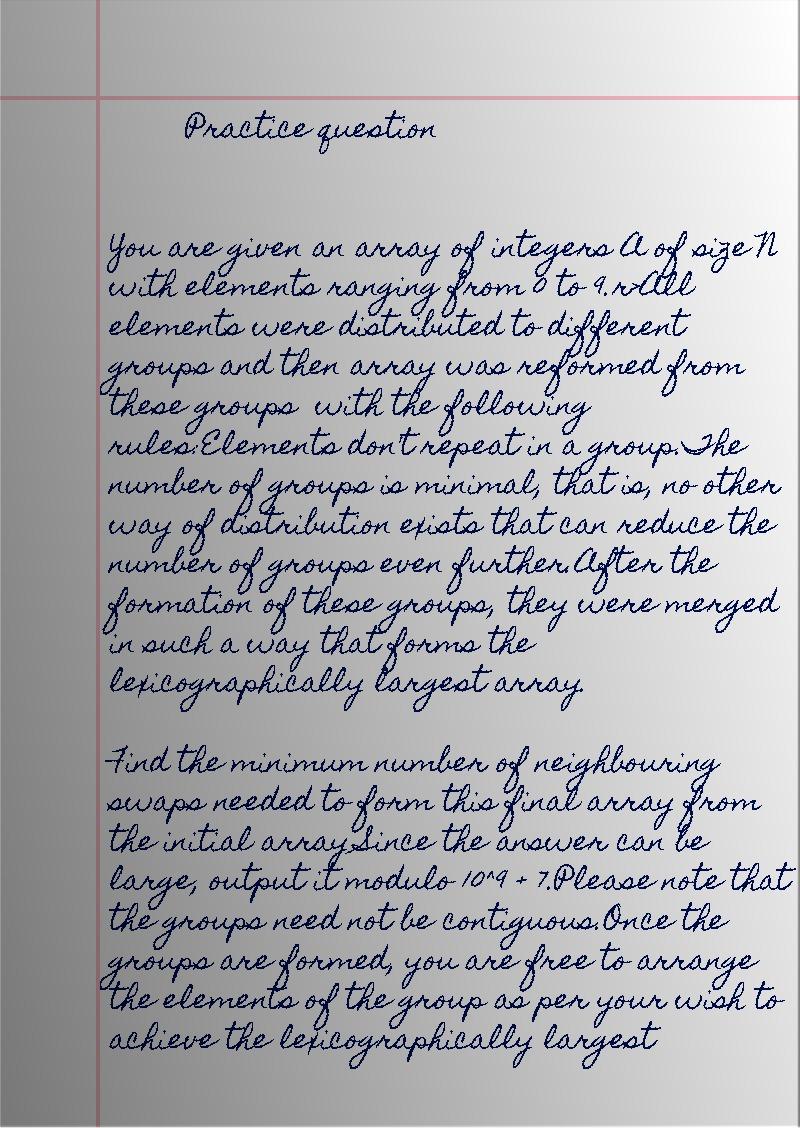 Practice question
You are given an array of integers A of size N
with elements ranging from 0 to 9.r>All
elements were distributed to different
groups and then array was reformed from
these groups with the following
rules:Elements don't repeat in a group.The
number of groups is minimal, that is, no other
way of distribution exists that can reduce the
number of groups even further.After the
formation of these groups, they were merged
in such a way that forms the
lexicographically largest array.
Find the minimum number of neighbouring
swaps needed to form this final array from
the initial array.Since the answer can be
large, output it modulo 10^9 + 7.Please note that
the groups need not be contiguous.Once the
groups are formed, you are free to arrange
the elements of the group as per your wish to
achieve the lexicographically largest